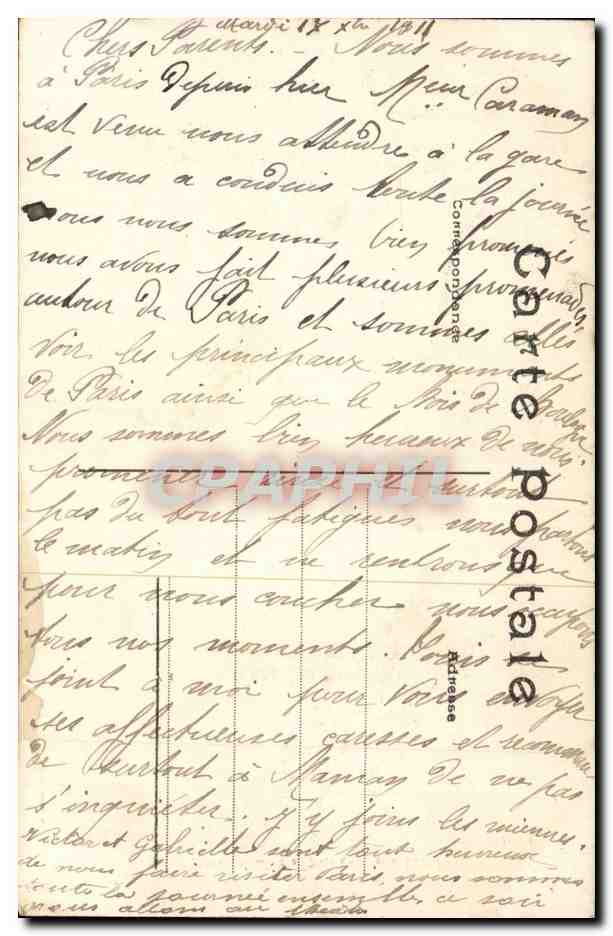 Mardi 1X Xbre 1911
Chers Parents. - Nous sommes
à Paris depuis hier Meur Caraman
est venu nous attendre à la gare
et nous a conduis toute la journée
nous nous sommes bien promenés
nous avons fait plusieurs promenades
autour de Paris et sommes allés
voir les principaux monuments
de Paris ainsi que le Bois de
Nous sommes bien heureux de nous
promener et surtout
pas du tout fatigués nous partons
le matin et ne rentrons que
pour nous coucher nous occupons
tous nos moments. Louis se
joint à moi pour vous envoyer
ses affectueuses caresses et recomman
de surtout à Maman de ne pas
s'inquiéter. J'y joins les miennes.
Victor et Gabrielle sont tout heureux
de nous faire visiter Paris nous sommes
toute la journée ensemble ce soir
nous allons au
Carte postale
Correspondance
Adresse
CPAPHIL